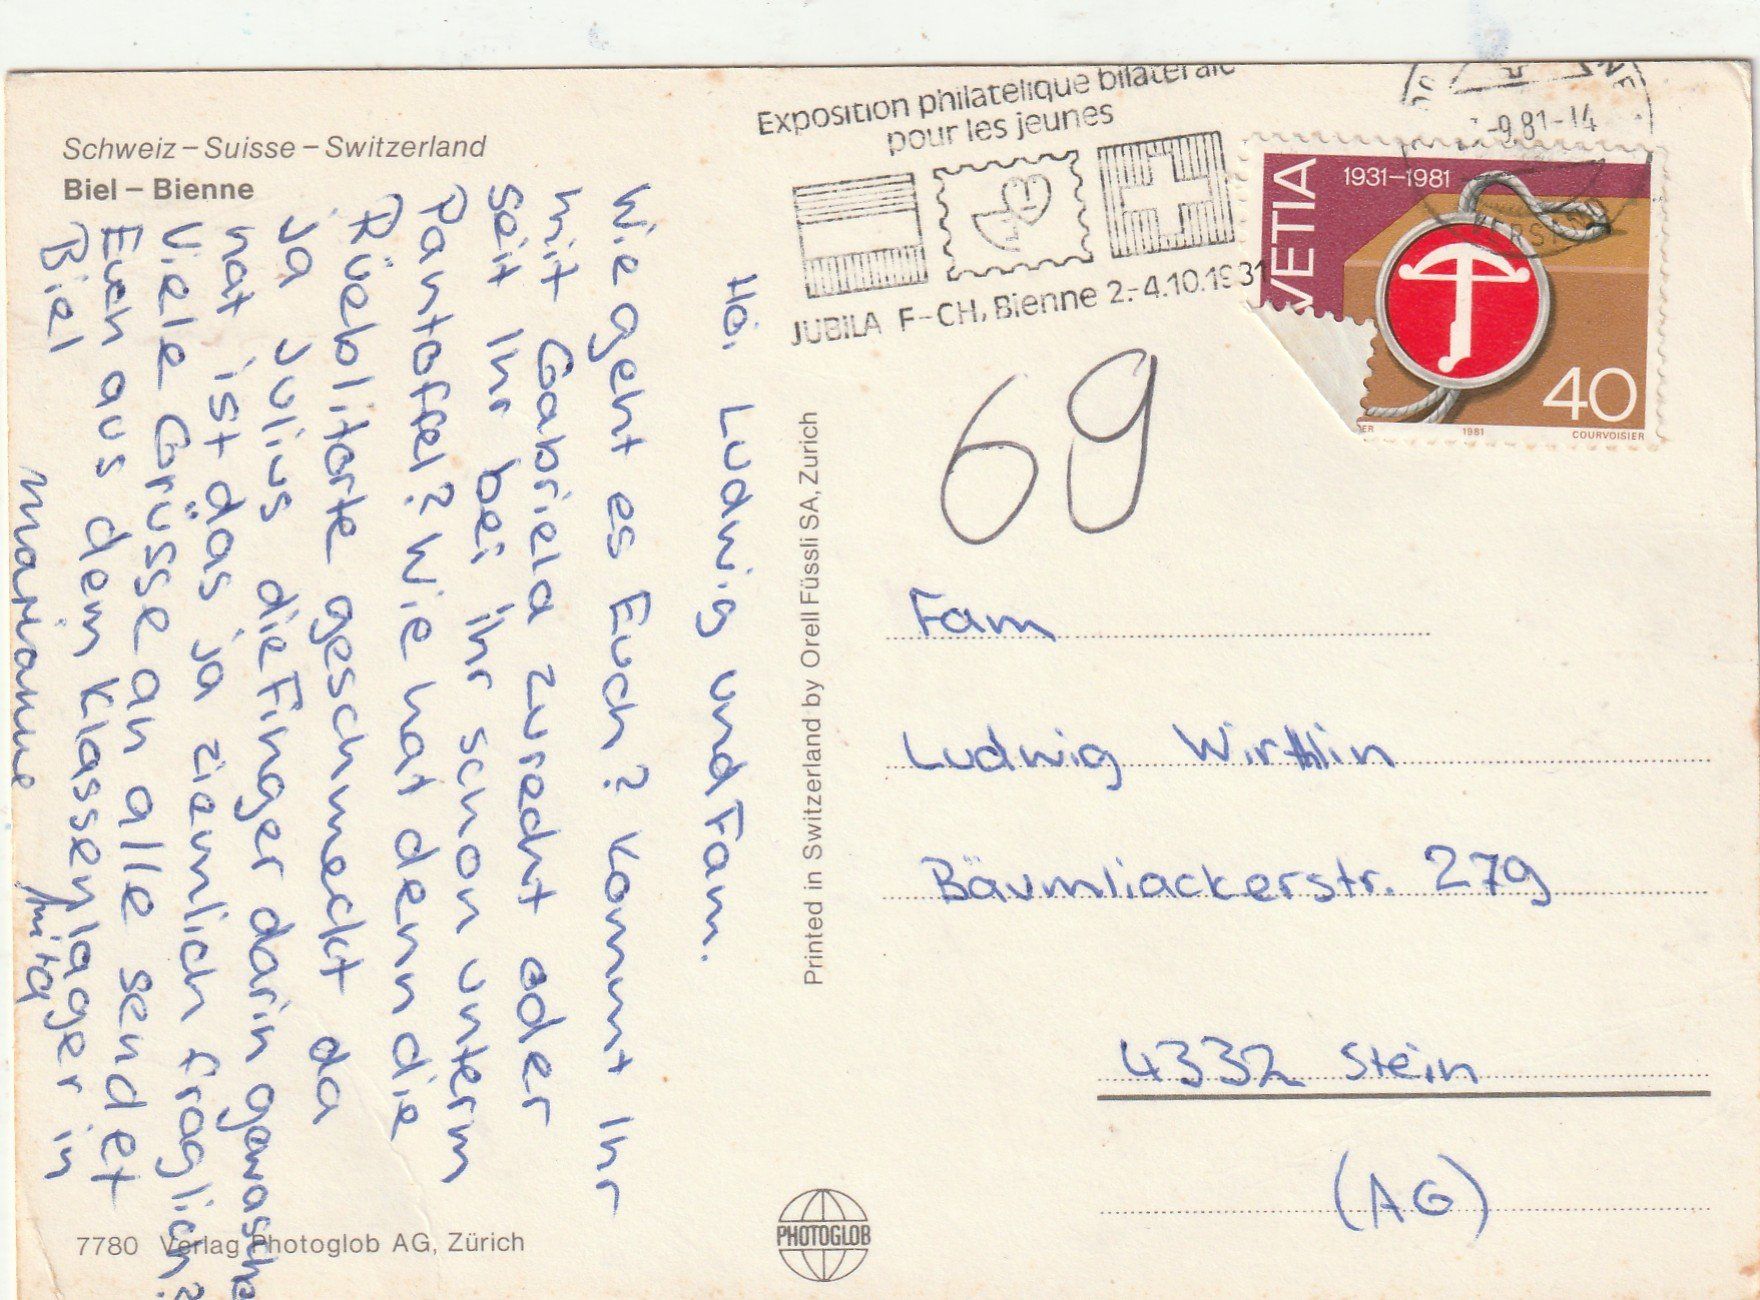 Schweiz – Suisse – Switzerland
Biel – Bienne
Hoi Ludwig und Fam.
Wie geht es Euch? Kommt Ihr
mit Gabriela zurecht oder
seit Ihr bei ihr schon unterm
Pantoffel? Wie hat denn die
Rüeblitorte geschmeckt da
ja Julius die Finger darin gewasche
hat ist das ja ziemlich fraglich?
Viele Grüsse an alle sendet
Euch aus dem Klassenlager in
Biel
Marianne Anita
7780 Verlag Photoglob AG, Zürich
Printed in Switzerland by Orell Füssli SA, Zurich
PHOTOGLOB
Exposition philatelique bilaterale
pour les jeunes
JUBILA F-CH, Bienne 2.-4.10.1981
-9.81-14
VERSAND
HELVETIA
1931–1981
40
1981
COURVOISIER
69
Fam
Ludwig Wirthlin
Bäumliackerstr. 279
4332 Stein
(AG)